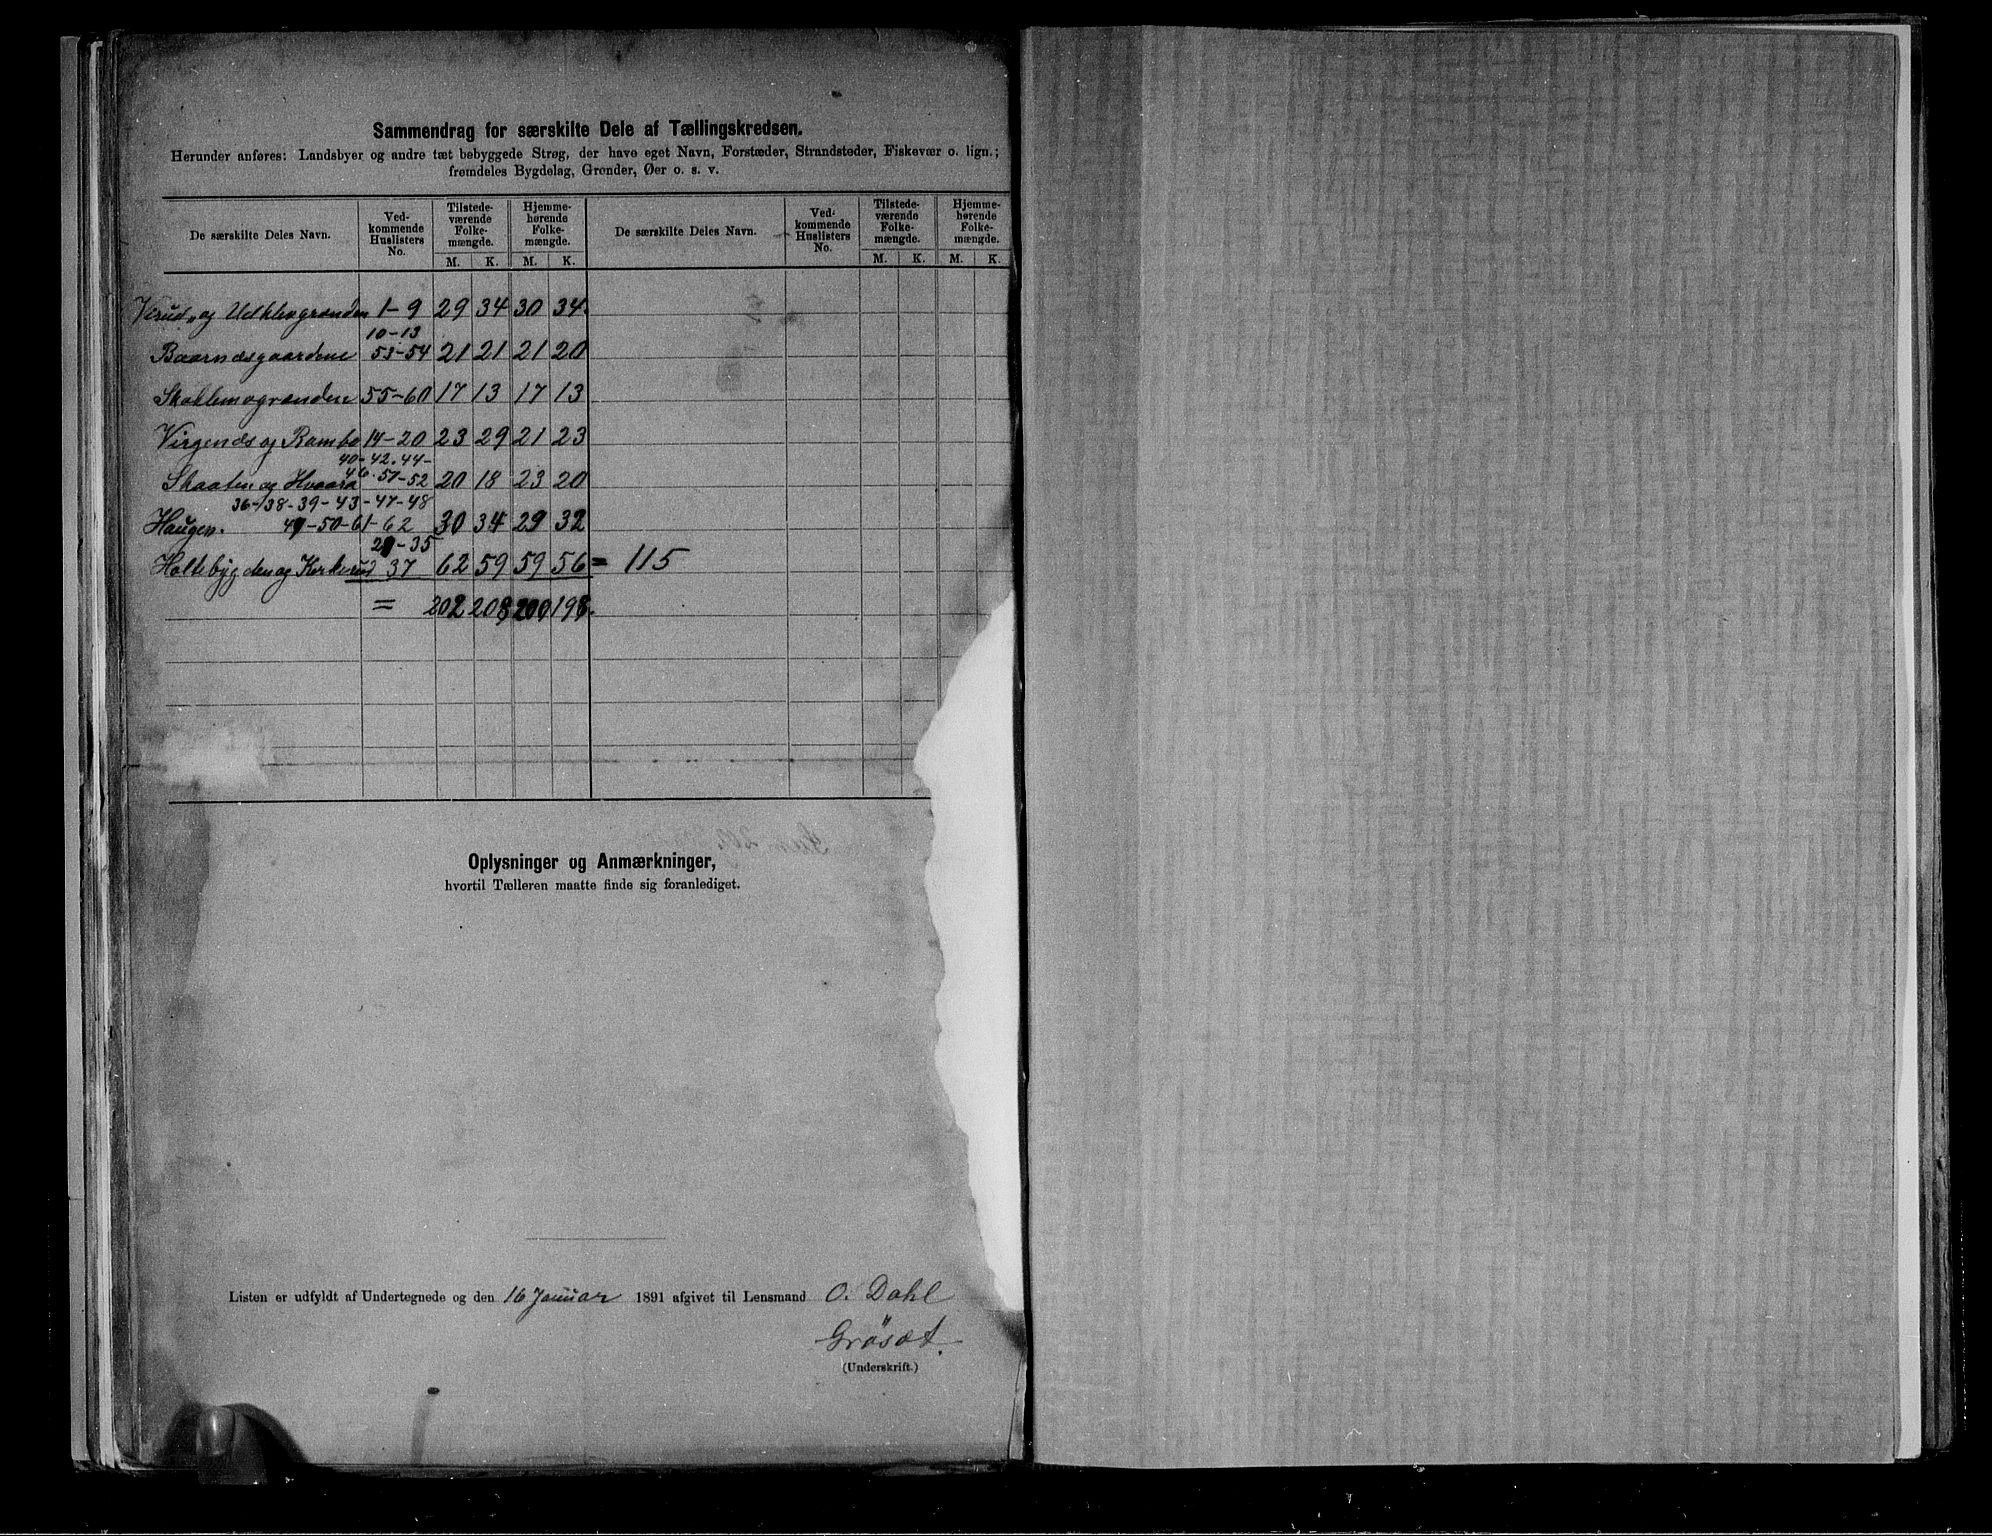 Sammendrag for særskilte Dele af Tællingskredsen.
Herunder anføres: Landsbyer og andre tæt bebyggede Strøg, der have eget Navn, Forstæder, Strandsteder, Fiskevær o. lign.;
fremdeles Bygdelag, Grender, Øer o. s. v.
De særskilte Deles Navn. Vedkommende Huslisters No. Tilstedeværende Folkemængde. Hjemmehørende Folkemængde. De særskilte Deles Navn. Vedkommende Huslisters No. Tilstedeværende Folkemængde. Hjemmehørende Folkemængde.
M. K. M. K. M. K. M. K.
og 1-9 29 34 30 34.
10-13
Baarnæsgaardene 53-54 21 21 21 20
55-60 17 13 17 13
Virgenæs og Rambo 14-20 23 29 21 23
40-42.44-
46.51-52
Skaaten og Hvaara 20 18 23 20
36-38-39-43-47-48
Haugen. 49-50-61-62 30 34 29 32
21-35
Holtebygden og Kirkerud 37 62 59 59 56 = 115
= 202 208 200 198.
Oplysninger og Anmærkninger,
hvortil Tælleren maatte finde sig foranlediget.
Listen er udfyldt af Undertegnede og den 16 Januar 1891 afgivet til Lensmand O. Dahl
Grøsæt.
(Underskrift.)